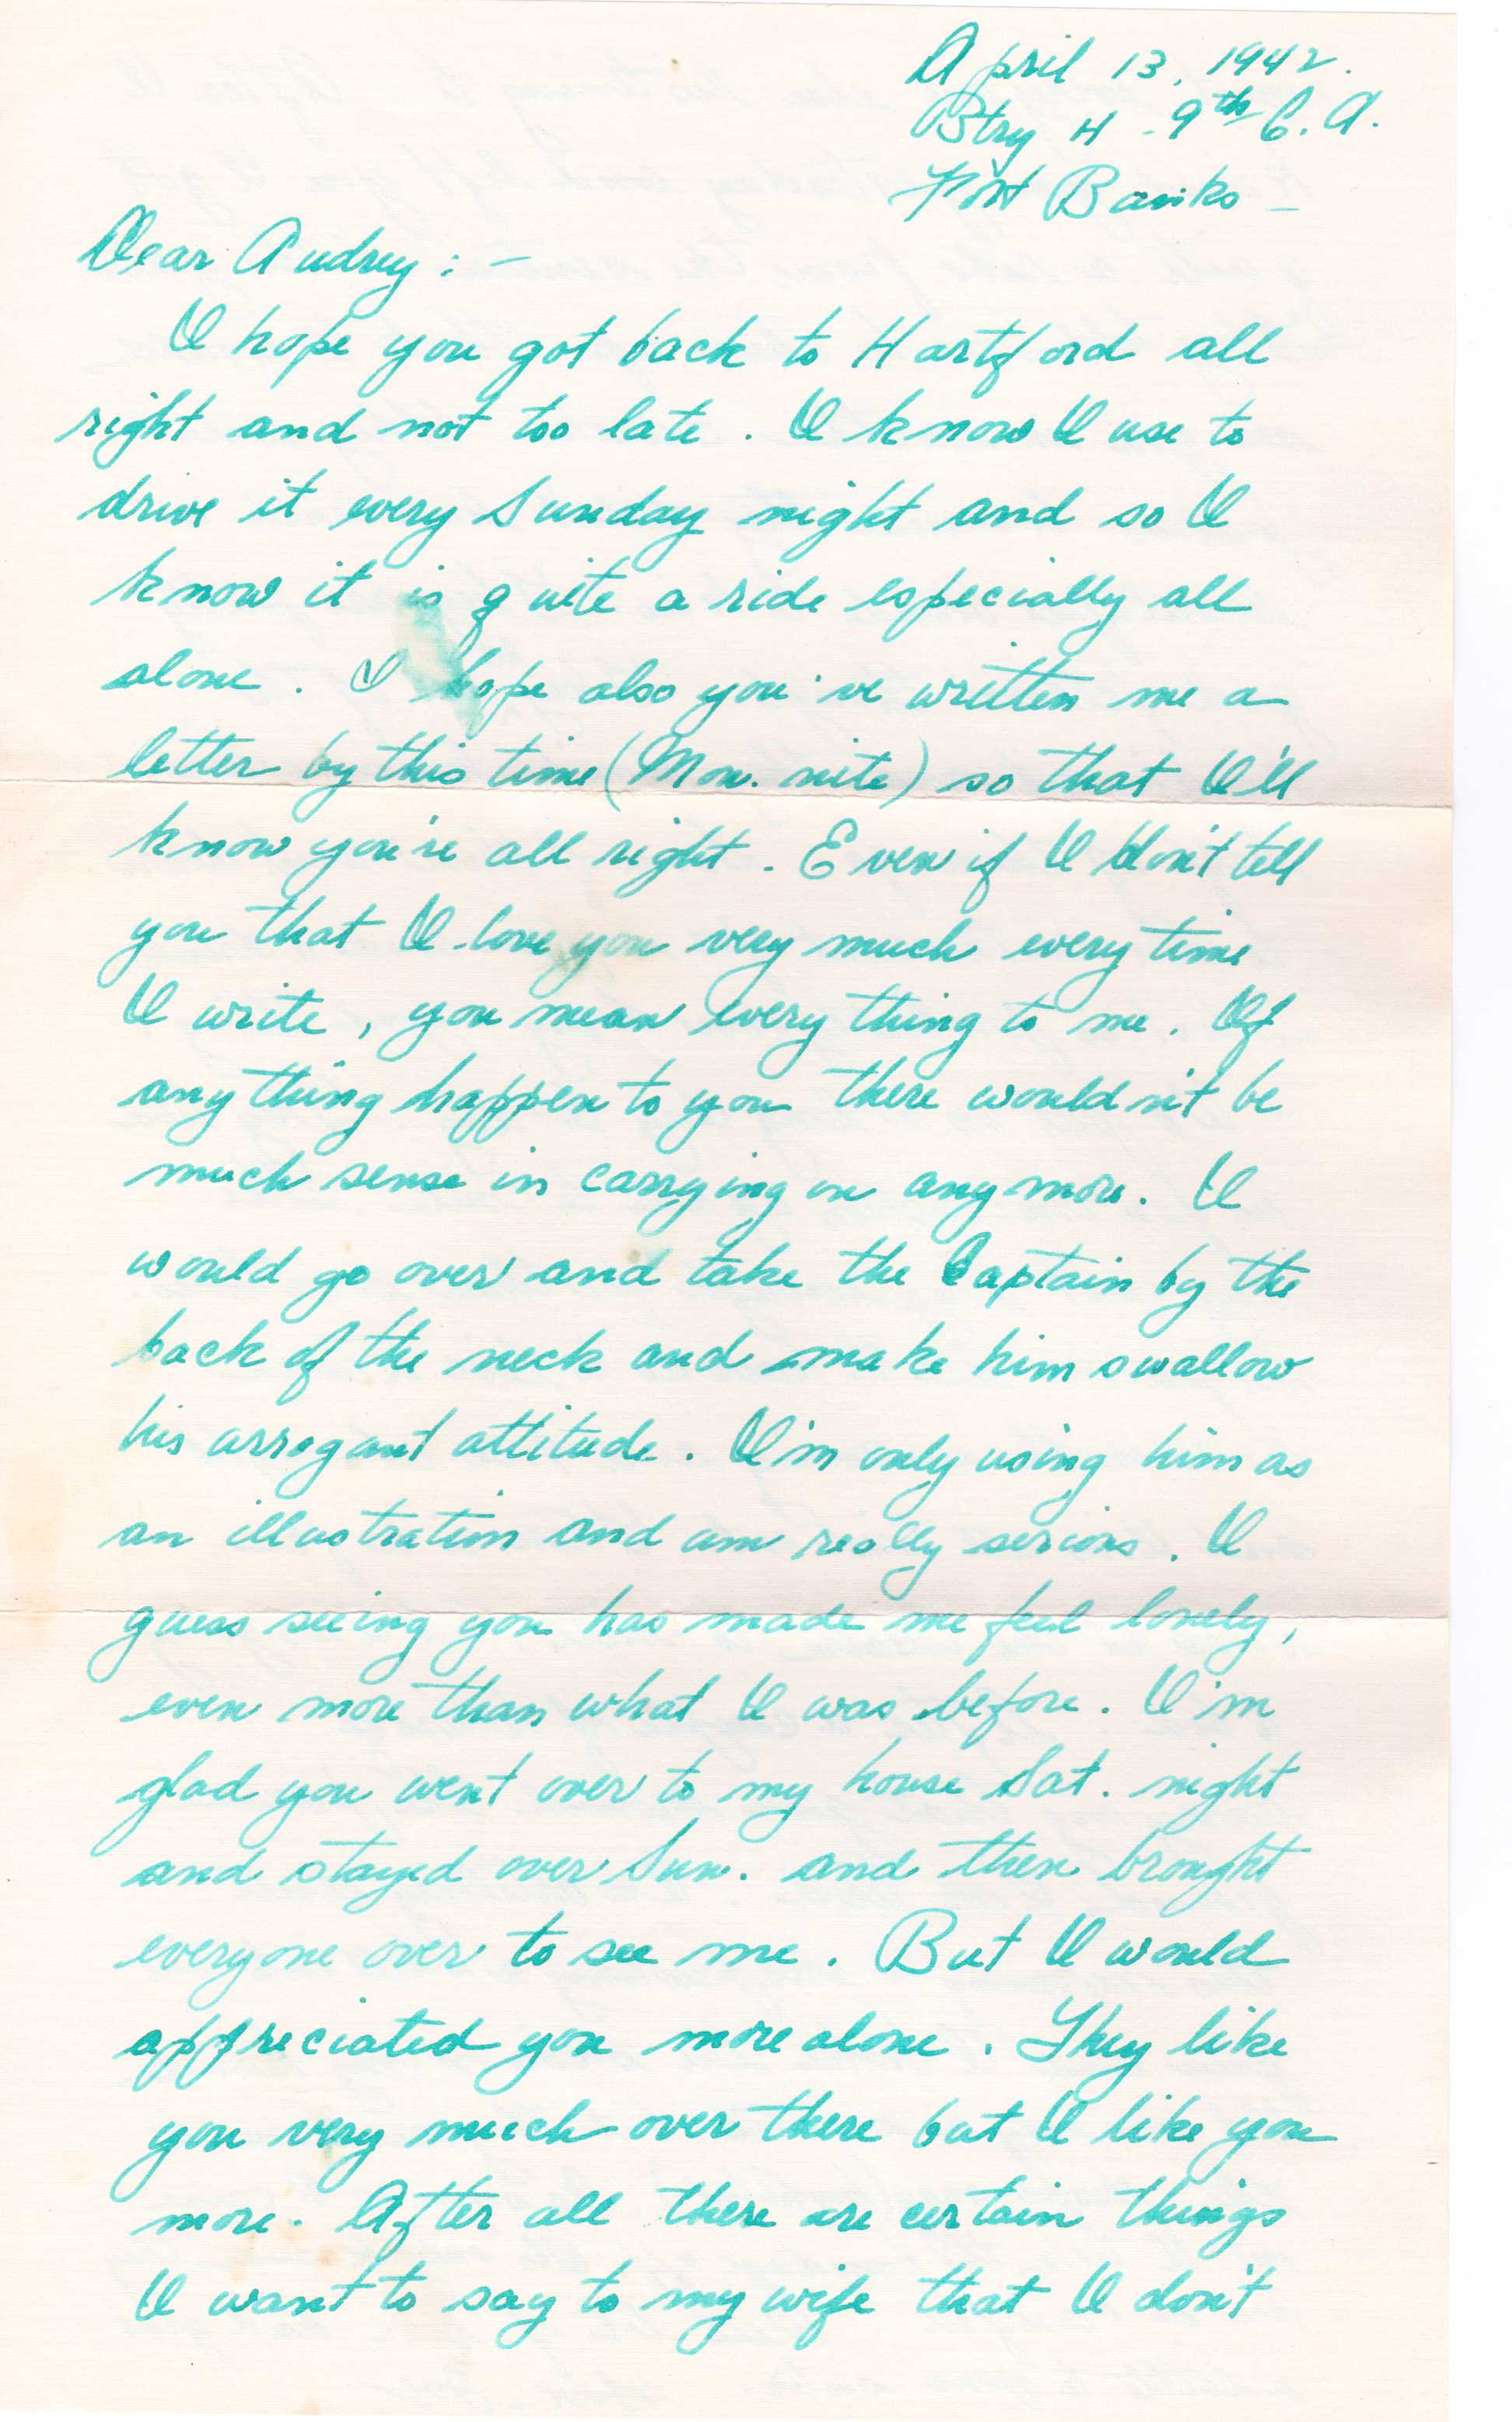 April 13, 1942.
Btry H - 9th C. A.
Fort Banks -
Dear Audrey : -
I hope you got back to Hartford all
right and not too late . I know I use to
drive it every Sunday night and so I
know it is quite a ride especially all
alone . I hope also you've written me a
letter by this time (Mon. nite) so that I'll
know you're all right . Even if I don't tell
you that I love you very much every time
I write , you mean everything to me . If
anything happen to you there wouldn't be
much sense in carrying on anymore. I
would go over and take the Captain by the
back of the neck and make him swallow
his arrogant attitude . I'm only using him as
an illustration and am really serious . I
guess seeing you has made me feel lonely ,
even more than what I was before . I'm
glad you went over to my house Sat. night
and stayed over Sun. and then brought
everyone over to see me . But I would
appreciated you more alone . They like
you very much over there but I like you
more . After all there are certain things
I want to say to my wife that I don't